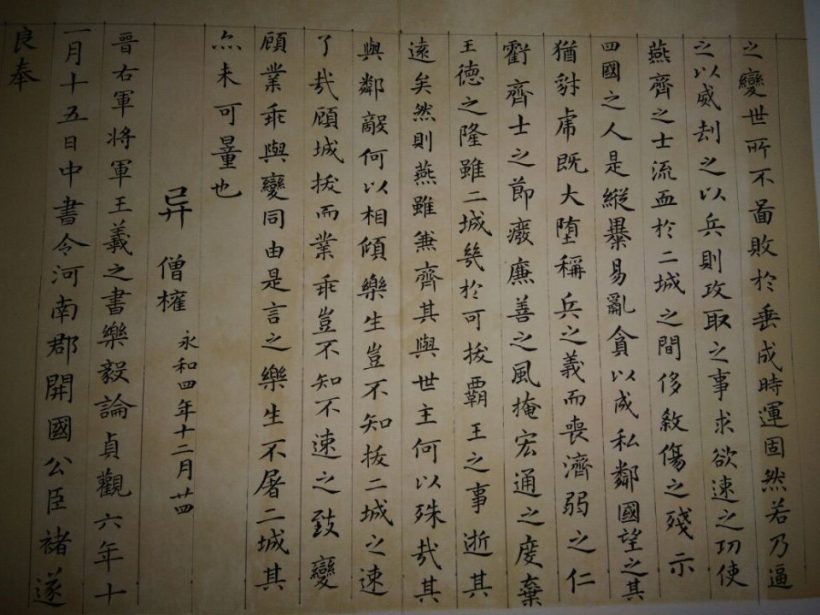 之變世所不啚敗於垂成時運固然若乃逼
之以威刦之以兵則攻取之事求欲速之功使
燕齊之士流血於二城之間侈敘傷之殘示
四國之人是縱暴易亂貪以成私鄰國望之其
猶豺虎既大堕稱兵之義而喪濟弱之仁
虧齊士之節癈廉善之風掩宏通之度棄
王德之隆雖二城幾於可拔覇王之事逝其
遠矣然則燕雖兼齊其與世主何以殊哉其
與鄰敵何以相傾樂生豈不知拔二城之速
了哉顧城拔而業乖豈不知不速之致變
顧業乖與變同由是言之樂生不屠二城其
亦未可量也
异僧權 永和四年十二月廿四
晉右軍將軍王羲之書樂毅論貞觀六年十
一月十五日中書令河南郡開國公臣褚遂
良奉